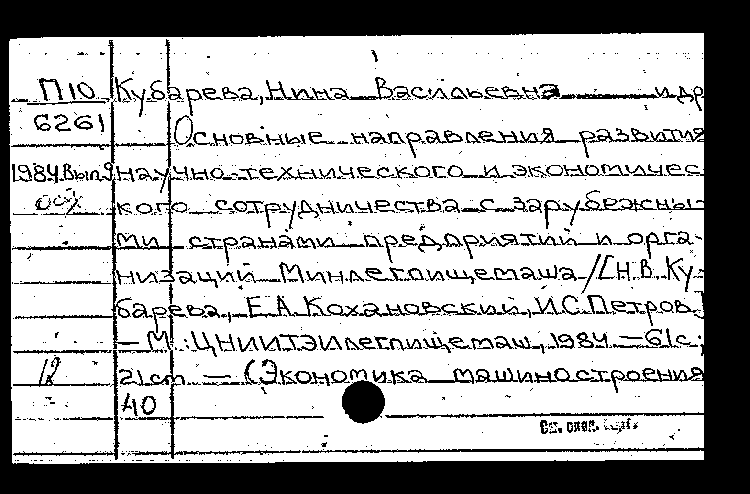 П10 Кубарева, Нина Васильевна и др
6261 Основные направления развития
1984 вып9 научно-технического и экономичес-
кого сотрудничества с зарубежны-
ми странами предприятий и орга-
низаций Минлегпищемаша /[Н.В. Ку-
барева, Е.А. Кохановский, И.С. Петров]
– М.: ЦНИИТЭИлегпищемаш, 1984 – 61с;
12 21 cm – (Экономика машиностроения
40
См. след. карт.